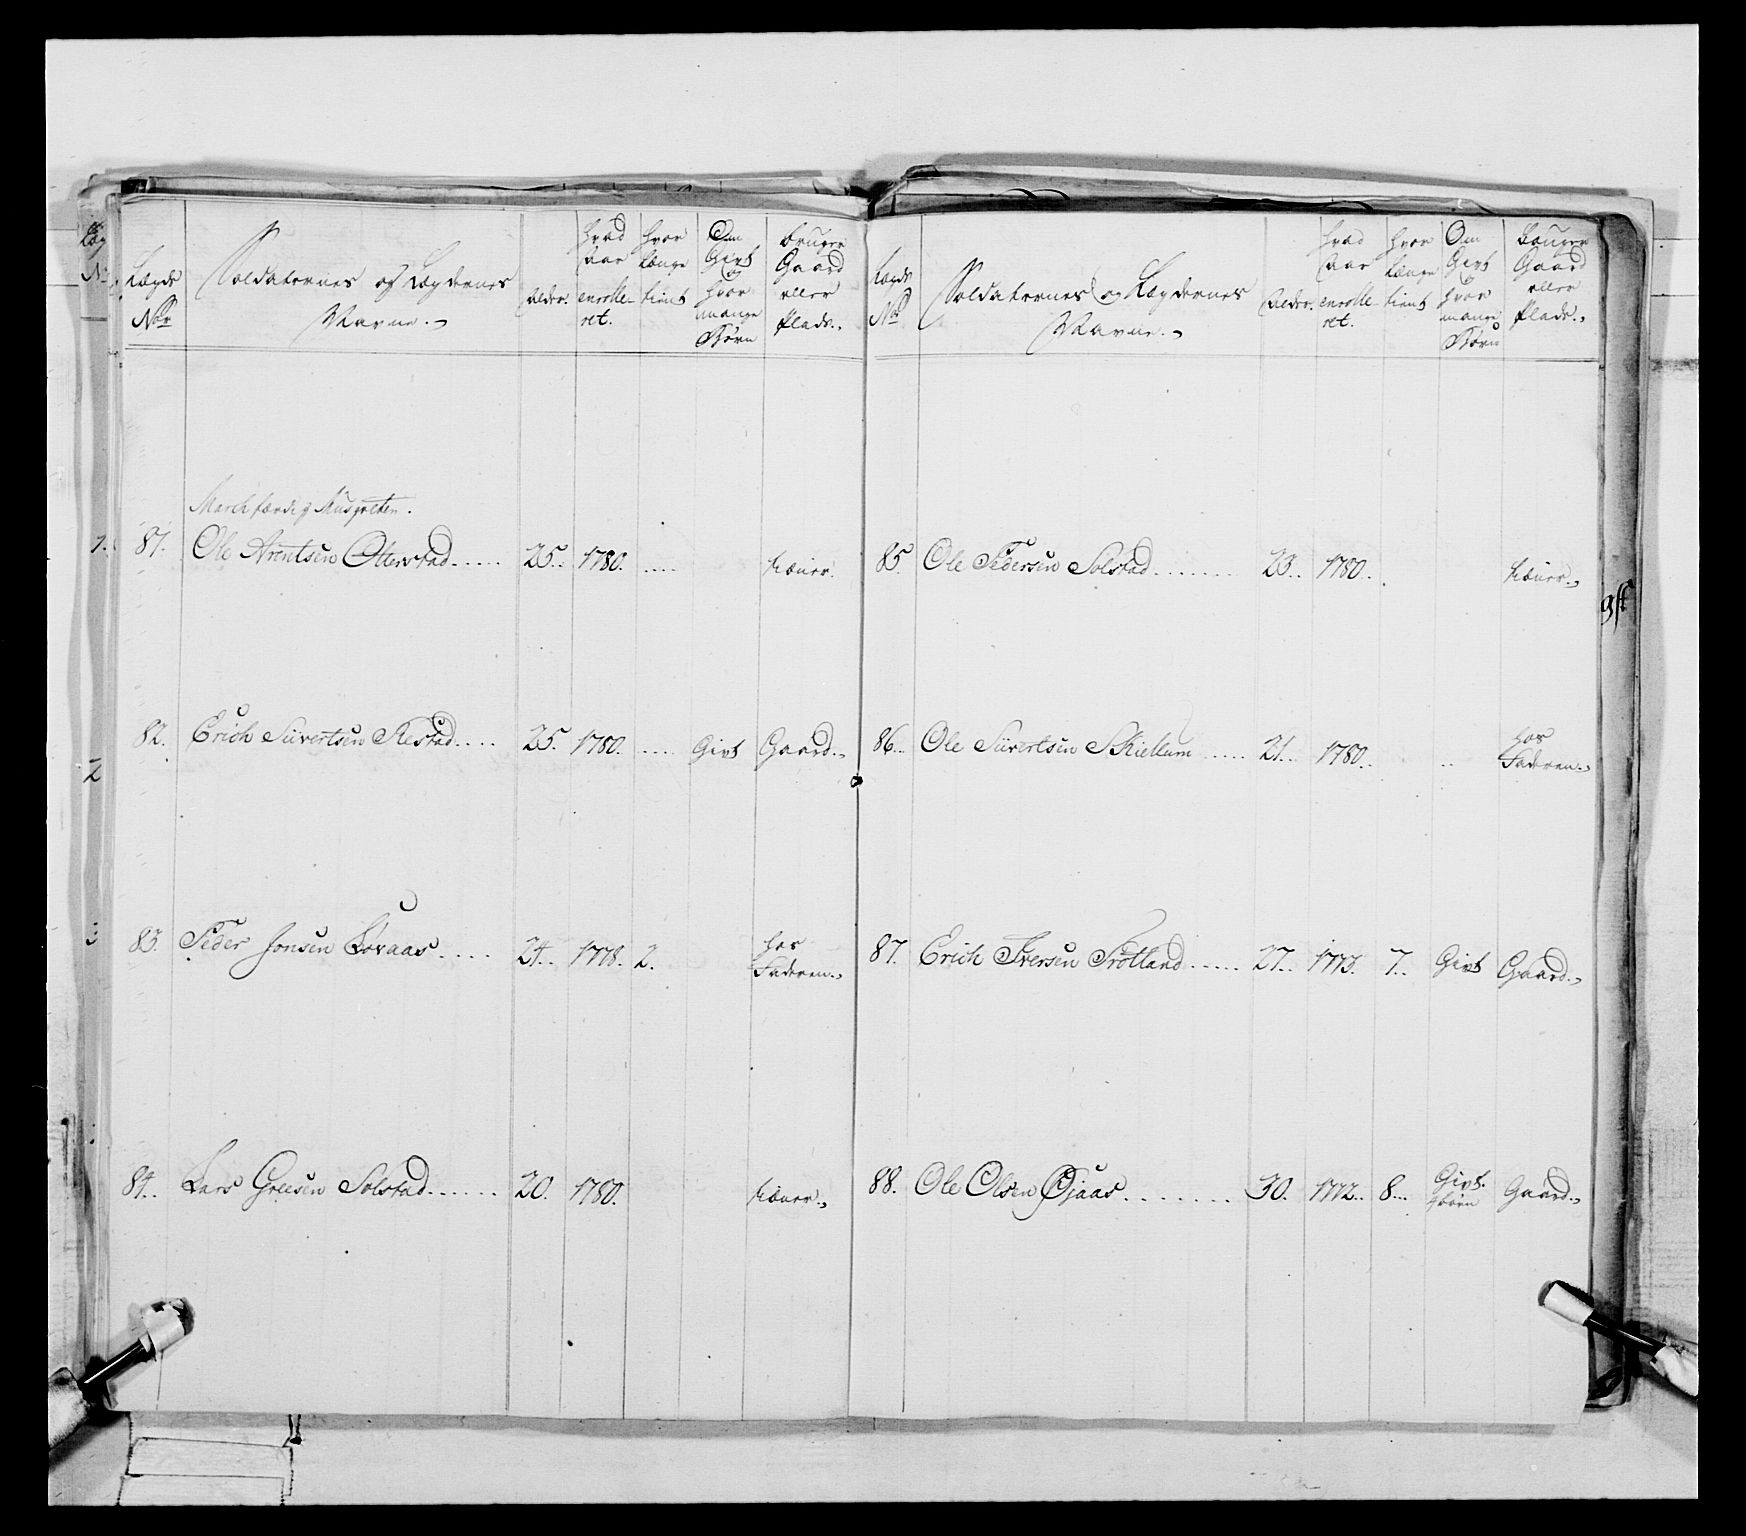 Lægds No
Soldaternes og Lægdernes Navne.
Alder.
hvad Aar enrolleret.
hvor længe tient
Om Givt og hvor mange Børn
bruger Gaard eller Plads.
Marchfærdig Musqveten.
81. Ole Arentsen Otterstad..... 25.. 1780. ..... tiener.
82. Erich Siivertsen Restad.... 25. 1780. ..... Givt Gaard.
83. Peder Jonsen Løvaas.... 24.. 1778. 2. hos Faderen.
84.. Lars Greesen Solstad...... 20. 1780. tiener.
Lægds No
Soldaternes og Lægdernes Navne.
Alder.
hvad Aar enrolleret.
hvor længe tient
Om Givt og hvor mange Børn
bruger Gaard eller Plads.
85. Ole Pedersen Solstad....... 23.. 1780.. tiener.
86... Ole Siivertsen Skiellum..... 21... 1780.. .. hos Faderen.
87. Erich Iversen Trøtland..... 27... 1773. 7.. Givt Gaard.
88. Ole Olsen Øjaas........ 30. 1772.. 8... Givt. børn Gaard.